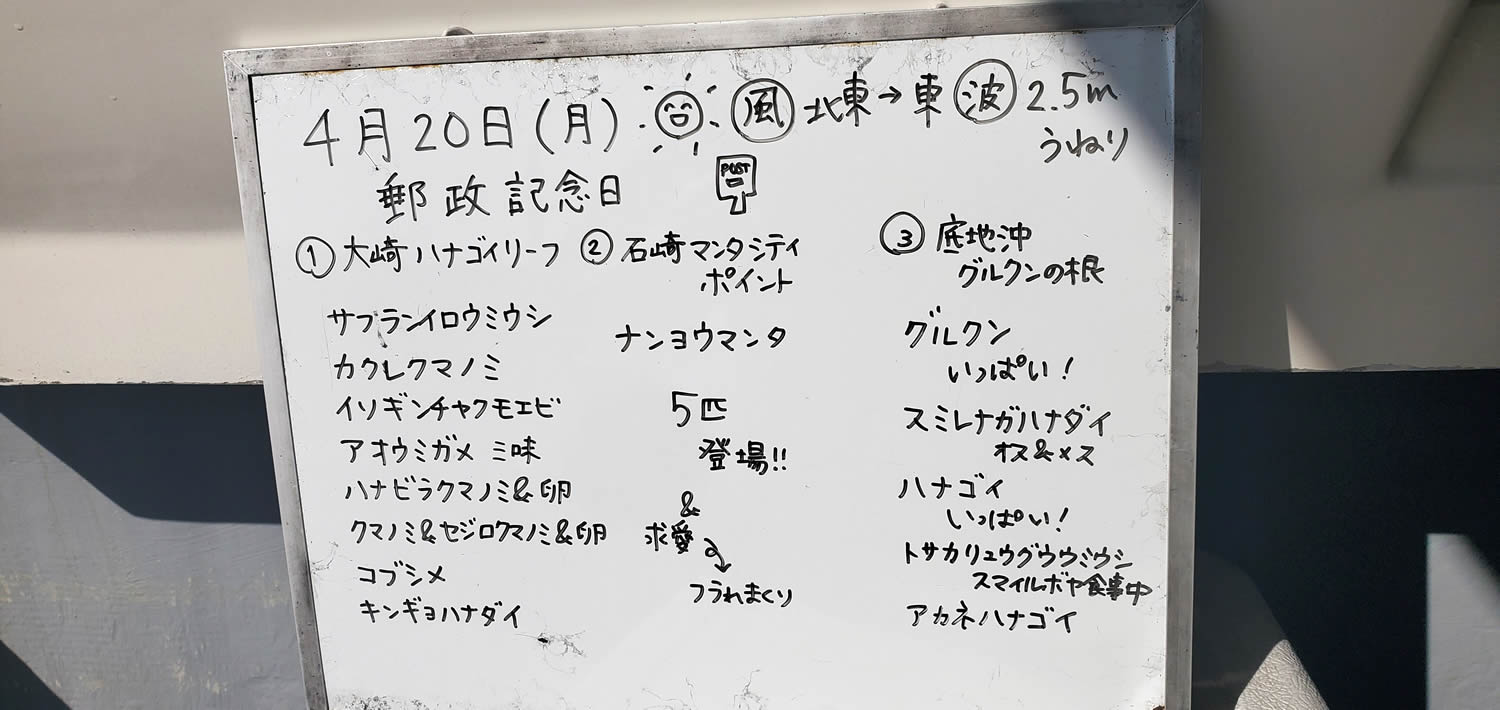 4月20日(月) 風 北東→東 波 2.5m
うねり
郵政記念日 POST
① 大崎ハナゴイリーフ
サフランイロウミウシ
カクレクマノミ
イソギンチャクモエビ
アオウミガメ 三味
ハナビラクマノミ&卵
クマノミ&セジロクマノミ&卵
コブシメ
キンギョハナダイ
② 石崎マンタシティ
ポイント
ナンヨウマンタ
5匹
登場!!
&
求愛
フラれまくり
③ 底地沖
グルクンの根
グルクン
いっぱい!
スミレナガハナダイ
オス&メス
ハナゴイ
いっぱい!
トサカリュウグウウミウシ
スマイルボヤ食事中
アカネハナゴイ